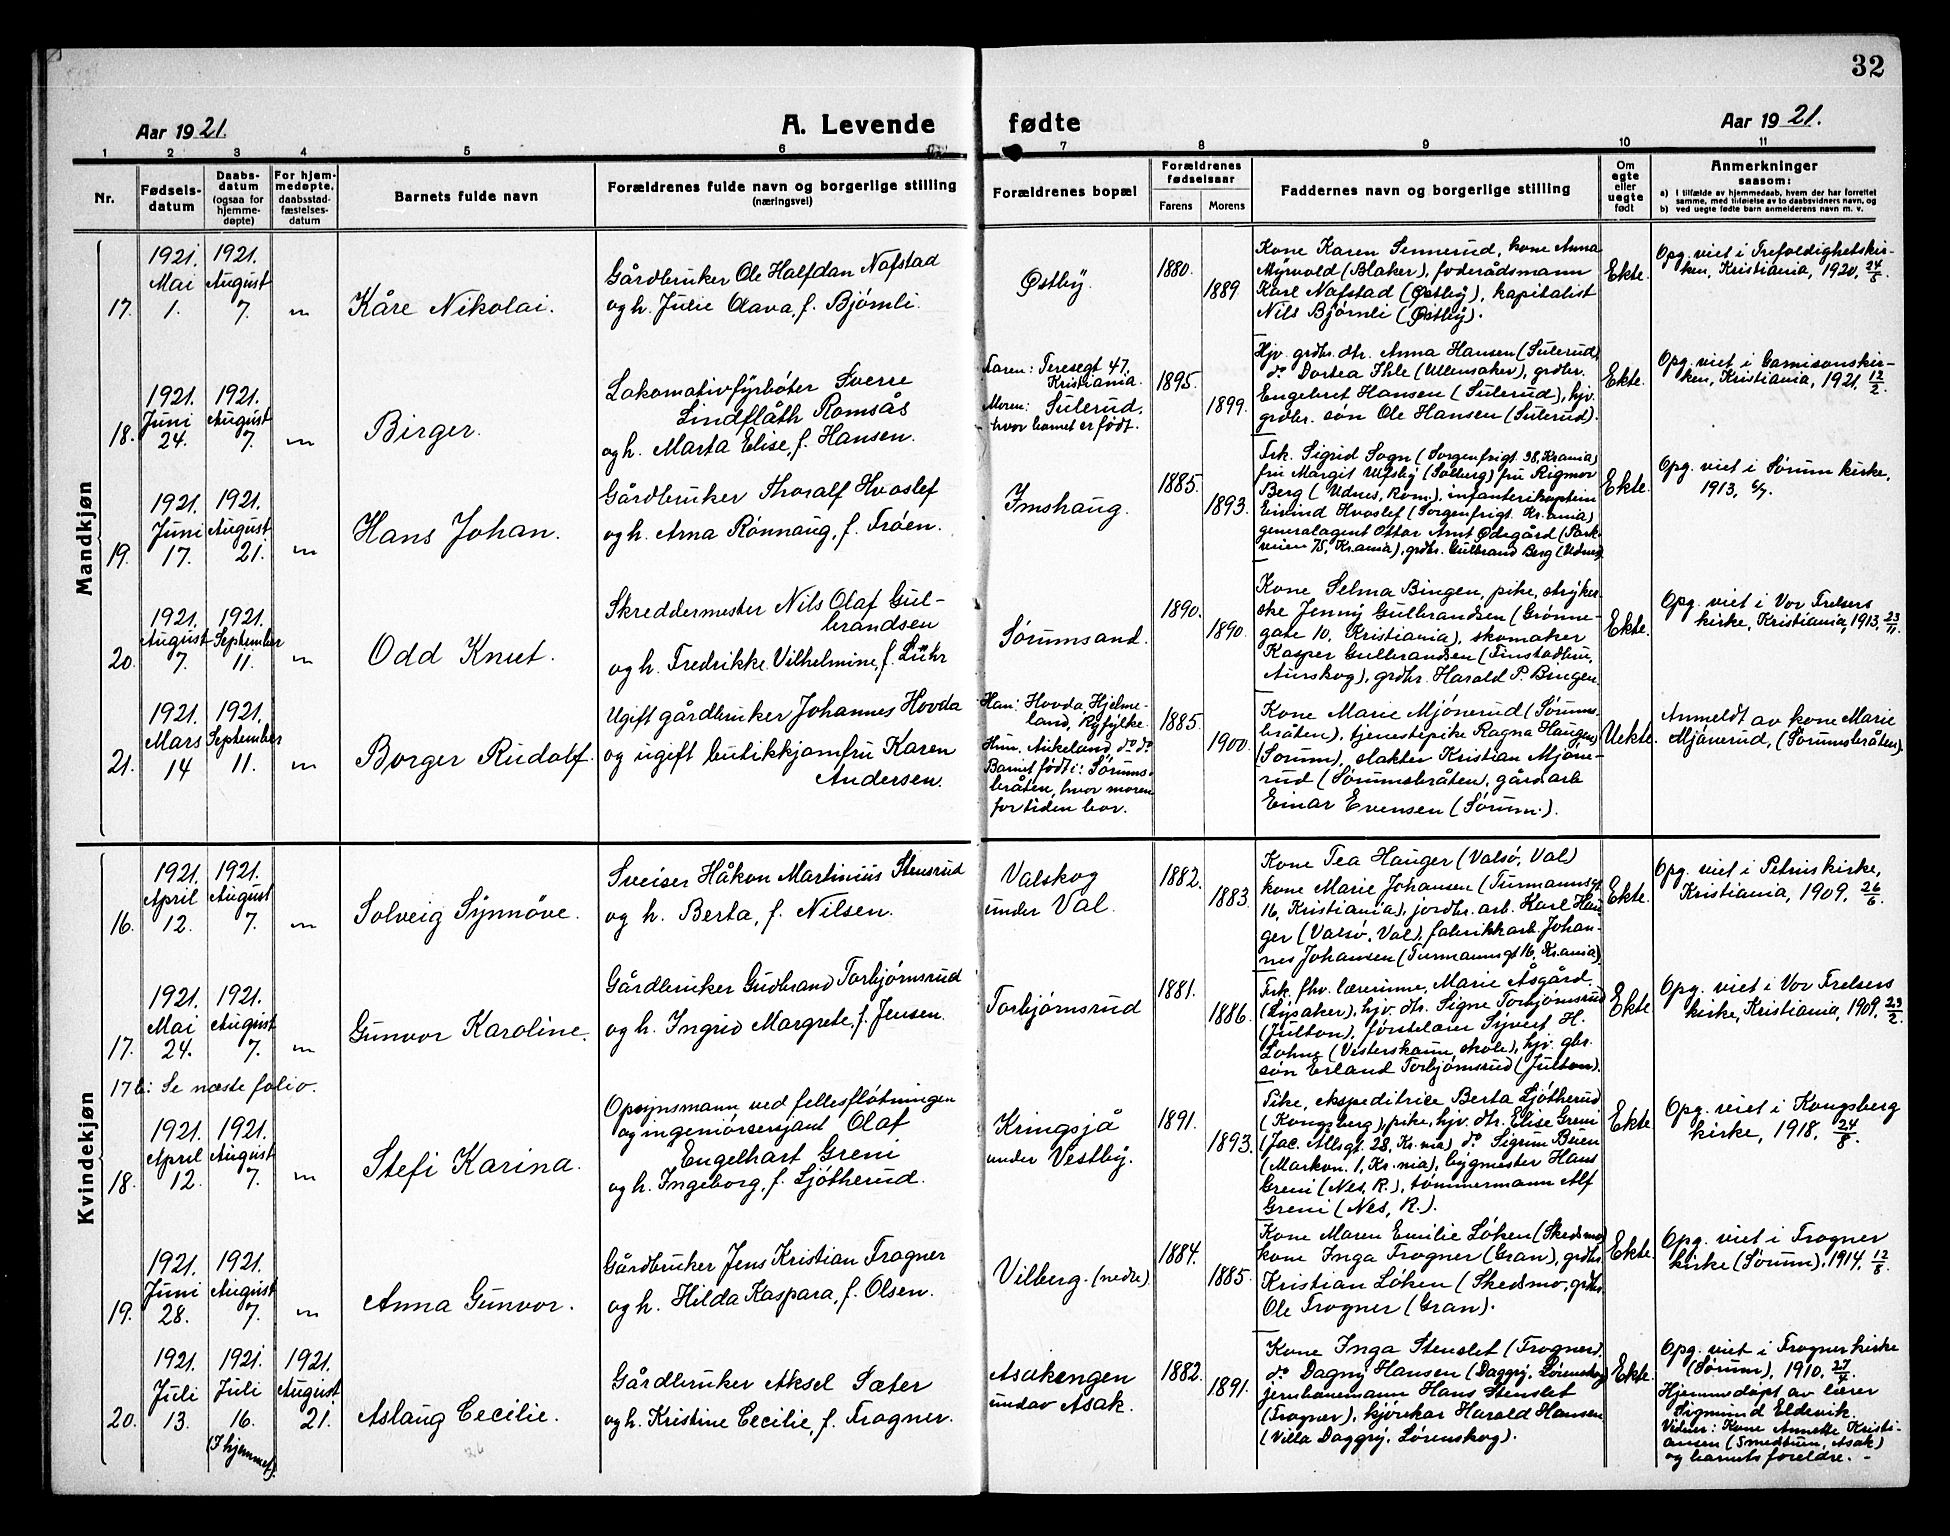 32
Aar 1921.
A. Levende fødte
Aar 1921.
1 2 3 4 5 6 7 8 9 10 11
Nr.
Fødselsdatum
Daabsdatum (ogsaa for hjemmedøpte)
For hjemmedøpte, daabsstadfæstelsesdatum
Barnets fulde navn
Forældrenes fulde navn og borgerlige stilling
(næringsvei)
Forældrenes bopæl
Forældrenes fødselsaar
Farens Morens
Faddernes navn og borgerlige stilling
Om egte eller uegte født
Anmerkninger
saasom:
a) I tilfælde av hjemmedaab, hvem der har forrettet
samme, med tilføielse av to daabsvidners navn, og
b) ved uegte fødte barn anmelderens navn m. v.
Mandkjøn
17. 1921. Mai 1. 1921. August 7. "
Kåre Nikolai.
Gårdbruker Ole Halfdan Nafstad
og h. Julie Olava, f. Bjømli.
Østby.
1880. 1889.
Kone Karen Sennerud, kone Anna
Myrvold (Blaker), foderådsmann
Karl Nafstad (Østby), kapitalist
Nils Bjømli (Østby).
Ekte.
Opg. viet i Trefoldighetskir-
ken, Kristiania, 1920, 24/5.
18. 1921. Juni 24. 1921. August 7. "
Birger.
Lokomotivfyrbøter Sverre
Lindflåth Romsås
og h. Marta Elise, f. Hansen.
Faren: Teresegt 47,
Kristiania.
Moren: Sulerud,
hvor barnet er født.
1895. 1899.
Hjv. grdbr. dtr. Anna Hansen (Sulerud)
do Dortea Ihle (Ullensaker), grdbr.
Engebret Hansen (Sulerud), hjv.
grdbr. søn Ole Hansen (Sulerud).
Ekte.
Opg. viet i Garnisonskir-
ken, Kristiania, 1921, 12/2.
19. 1921. Juni 17. 1921. August 21. "
Hans Johan.
Gårdbruker Thoralf Hvoslef
og h. Arna Rønnaug, f. Frøen.
Imshaug.
1885. 1893.
Frk. Sigrid Sogn (Sorgenfrigt 38, Krania)
fru Margit Ulfsby (Solberg) fru Rigmor
Berg (Udnes, Rom.), infanterikaptein
Eivind Hvoslef (Sorgenfrigt. Kr.ania)
generalagent Ottar Arnt Ødegård (Park-
veien 75, Kr.ania), grdbr. Gulbrand Berg (Udnes)
Ekte.
Opg. viet i Sørum kirke,
1913, 6/7.
20. 1921. August 7. 1921. September 11. "
Odd Knut.
Skreddermester Nils Olaf Gul-
brandsen
og h. Fredrikke Vilhelmine, f. Lühr
Sørumsand.
1890. 1890.
Kone Selma Bingen, pike, stryker-
ske Jenny Gulbrandsen (Grønne-
gate 10, Kristiania), skomaker
Kasper Gulbrandsen (Finstadbru,
Aurskog), grdbr. Harald P. Bingen.
Ekte.
Opg. viet i Vor Frelsers
kirke, Kristiania, 1913, 23/11.
21. 1921. Mars 14 1921. September 11. "
Borger Rudolf.
Ugift gårdbruker Johannes Hovda
og ugift butikkjomfru Karen
Andersen.
Han: Hovda, Hjelme-
land, Ryfylke.
Hun, Aukeland, do do
Barnet født i: Sørums-
bråten, hvor moren
for tiden bor.
1885. 1900.
Kone Marie Mjønerud (Sørums-
bråten), tjenestepike Ragna Haugen
(Sørum), slakter Kristian Mjøne-
rud (Sørumsbråten), gårdarb
Einar Evensen (Sørum).
Uekte.
Anmeldt av kone Marie
Mjønerud, (Sørumsbråten).
Kvindekjøn
16. 1921. April 12. 1921. August 7. "
Solveig Synnøve.
Sveiser Håkon Martinius Stensrud
og h. Berta, f. Nilsen.
Valskog
under Val.
1882. 1883.
Kone Tea Hauger (Valsø, Val)
kone Marie Johansen (Turmannsgt
16, Kristiania), jordbr. arb. Karl Hau-
ger (Valsø, Val), fabrikkarb. Johan-
nes Johansen (Turmannsgt 16, Kr.ania)
Ekte.
Opg. viet i Petruskirke,
Kristiania, 1909, 26/6.
17. 1921. Mai 24. 1921. August 7. "
Gunvor Karoline.
Gårdbruker Gudbrand Torbjørnsrud
og h. Ingrid Margrete, f. Jensen.
Torbjørnsrud
1881. 1886.
Frk. fhv. lærerinne, Marie Åsgård
(Lysaker), hjv. dtr. Signe Torbjørnsrud
(Julton), førstelærer Syvert H.
Lohne (Vesterskaun skole), hjv. gbr.
søn Erland Torbjørnsrud (Julton).
Ekte.
Opg. viet i Vor Frelsers
kirke, Kristiania, 1909, 23/2.
17 b: Se næste folio.
18. 1921. April 12. 1921. August 7. "
Stefi Karina.
Opsynsmann ved fellesfløtningen
og ingeniørsersjant Olaf
Engelhart Greni
og h. Ingeborg, f. Ljøtherud.
Kringsjå
under Vestby.
1891. 1893.
Pike, ekspeditrice Berta Ljøtherud
(Kongsberg), pike, hjv. dtr. Elise Greni
(Jac. Allsgt 28, Kr.nia) do Sigrun Buen
(Markvn. 1, Kr.nia), bygmester Hans
Greni (Nes, R.), tømmermann Alf
Greni (Nes, R.).
Ekte.
Opg. viet i Kongsberg
kirke, 1918, 24/8.
19. 1921. Juni 28. 1921. August 7. "
Anna Gunvor.
Gårdbruker Jens Kristian Frogner
og h. Hilda Kaspara, f. Olsen.
Vilberg. (nedre)
1884. 1885.
Kone Maren Emilie Løken (Skedsmo)
kone Inga Frogner (Gran), grdbr.
Kristian Løken (Skedsmo, grdbr.
Ole Frogner (Gran).
Ekte.
Opg. viet i Frogner
kirke (Sørum), 1914, 12/8.
20. 1921. Juli 13. 1921. Juli 16. (I hjemmet). 1921. August 21.
Aslaug Cecilie.
Gårdbruker Aksel Sæter
og h. Kristine Cecilie, f. Frogner.
Asakengen
under Asak.
1882. 1891.
Kone Inga Stenslet (Frogner),
do Dagny Hansen (Daggry, Lørenskog)
jernbanemann Hans Stenslet
(Frogner), kjørekar Harald Hansen
(Villa Daggry, Lørenskog).
Ekte.
Opg. viet i Frogner kirke
(Sørum), 1910, 27/4.
Hjemmedøpt av lærer
Sigmund Eldevik.
Vidner: Kone Annette Kristi-
ansen (Smedtun, Asak)
og barnets foreldre. -